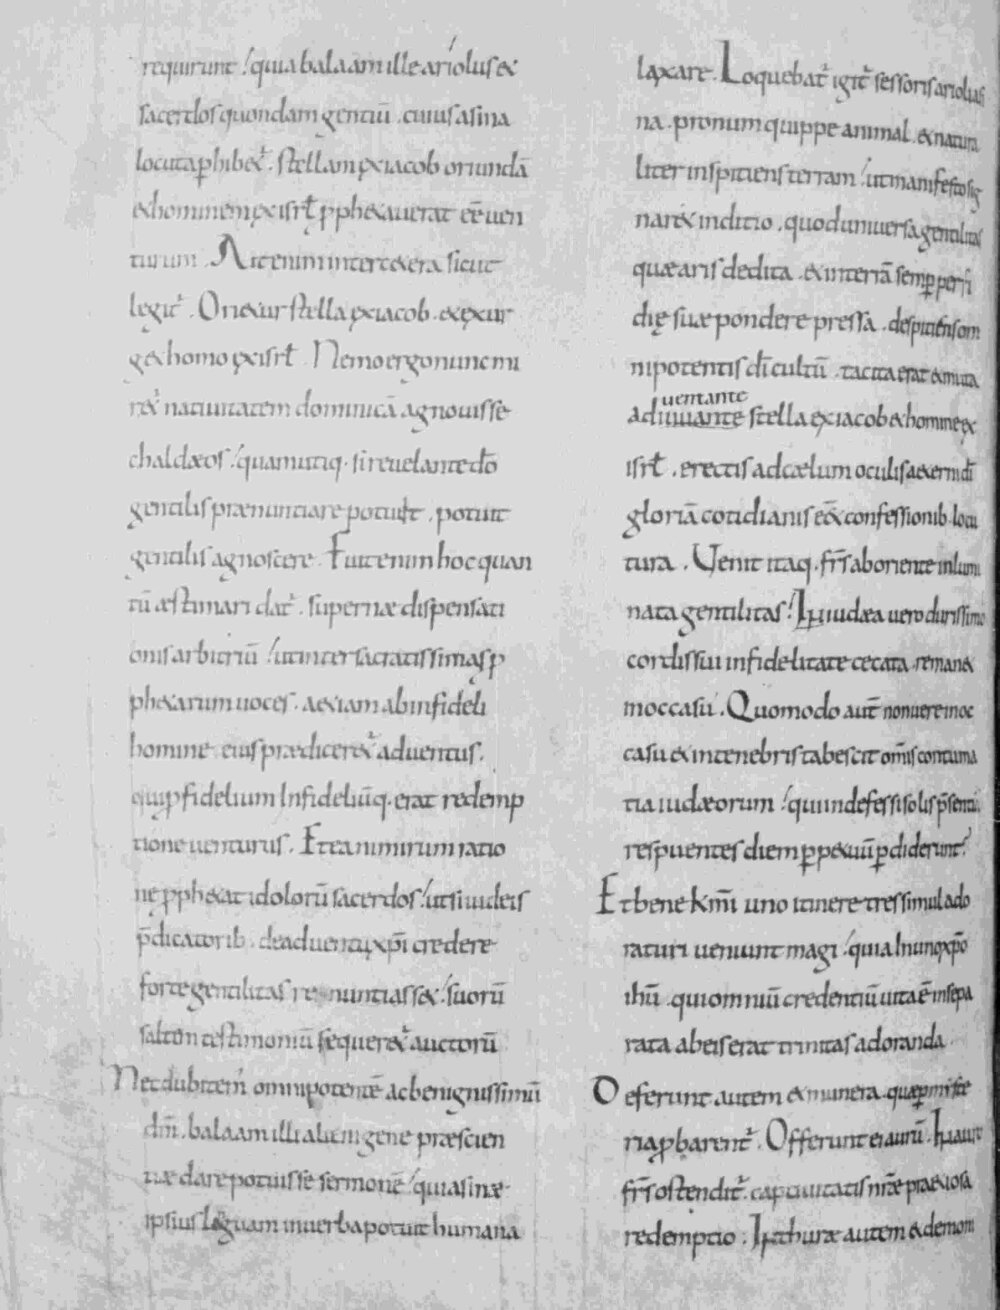 requirunt quia balaam ille ariolus &
sacerdos quondam gentiū . cuius asina
locuta ꝑhibet᷑ . stellam ex iacob oriundā
& hominem ex isrł ꝓph&auerat eē uen
turum . Ait enim inter c&era sicut
legit᷑ . Ori&ur stella ex iacob . & exur
g& homo ex isrł . Nemo ergo nunc mi
ret᷑ natiuitatem dominicā agnouisse
chaldæos quam utiq. si reuelante dō
gentilis prænuntiare potuit . potuit
gentilis agnoscere . Fuit enim hoc quan
tū æstimari dat᷑ . supernæ dispensati
onis arbitriū ut inter sacratissimas ꝓ
ph&arum uoces . a&iam ab infideli
homine eius prædiceret᷑ aduentus .
qui ꝑfidelium Infideliūq. erat redemp
tione uenturus . Et ea nimirum ratio
ne ꝓph&at idolorū sacerdos ut si iudeis
p̄dicatorib . de aduentu xp̄i credere
forte gentilitas renuntiass& suorū
saltem testimoniū sequeret᷑ auctorū
Nec dubitem̄ omnipotentē ac benignissimū
dm̄ . balaam illi alienigene præscien
tiæ dare potuisse sermonē quia sinæ
ipsius linguam in uerba potuit humana
laxare . Loquebat᷑ igit᷑ sessoris arioli asi
na . pronum quippe animal . & natura
liter inspitiens terram ut manifesto sig
nar& inditio . quod uniuersa gentilitas
quæ aris dedita . & in terrā semꝑ perfi
dię suæ pondere pressa . despitiens om
nipotentis dī cultū . tacita erat & muta
uentante
adiuuante stella ex iacob & homine ex
isrł . erectis ad cælum oculis a&erni dī
gloriā cotidianis eēt confessionib. locu
tura . Uenit itaq. frs̄ ab oriente inlumi
nata gentilitas In iudæa uero durissimo
cordis sui infidelitate cecata . reman&
in occasu . Quomodo aut̄ non uere in oc
casu & in tenebris tabescit om̄is contuma
tia iudæorum qui indefessi solis p̄sentiā
respuentes diem ꝑp&uū ꝑdiderunt
Et bene km̄i uno itinere tres simul ado
raturi ueniunt magi quia In uno xp̄o
ihū . qui omniū credentiū uita ē insepa
rata ab eis erat trinitas adoranda
Deferunt autem & munera . quæ
ria ꝓbarent᷑ . Offerunt ei aurū . In auro
frs̄ ostendit᷑ . captiuitatis nr̄æ præ&iosa
redemptio . In thuræ autem & demoni